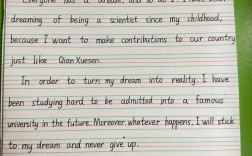 Everyone has a dream, and so do I. I have been
dreaming of being a scientist since my childhood,
because I want to make contributions to our country
just like Qian Xuesen.
In order to turn my dream into reality, I have
been studying hard to be admitted into a famous
university in the future. Moreover, whatever happens, I will stick
to my dream and never give up.